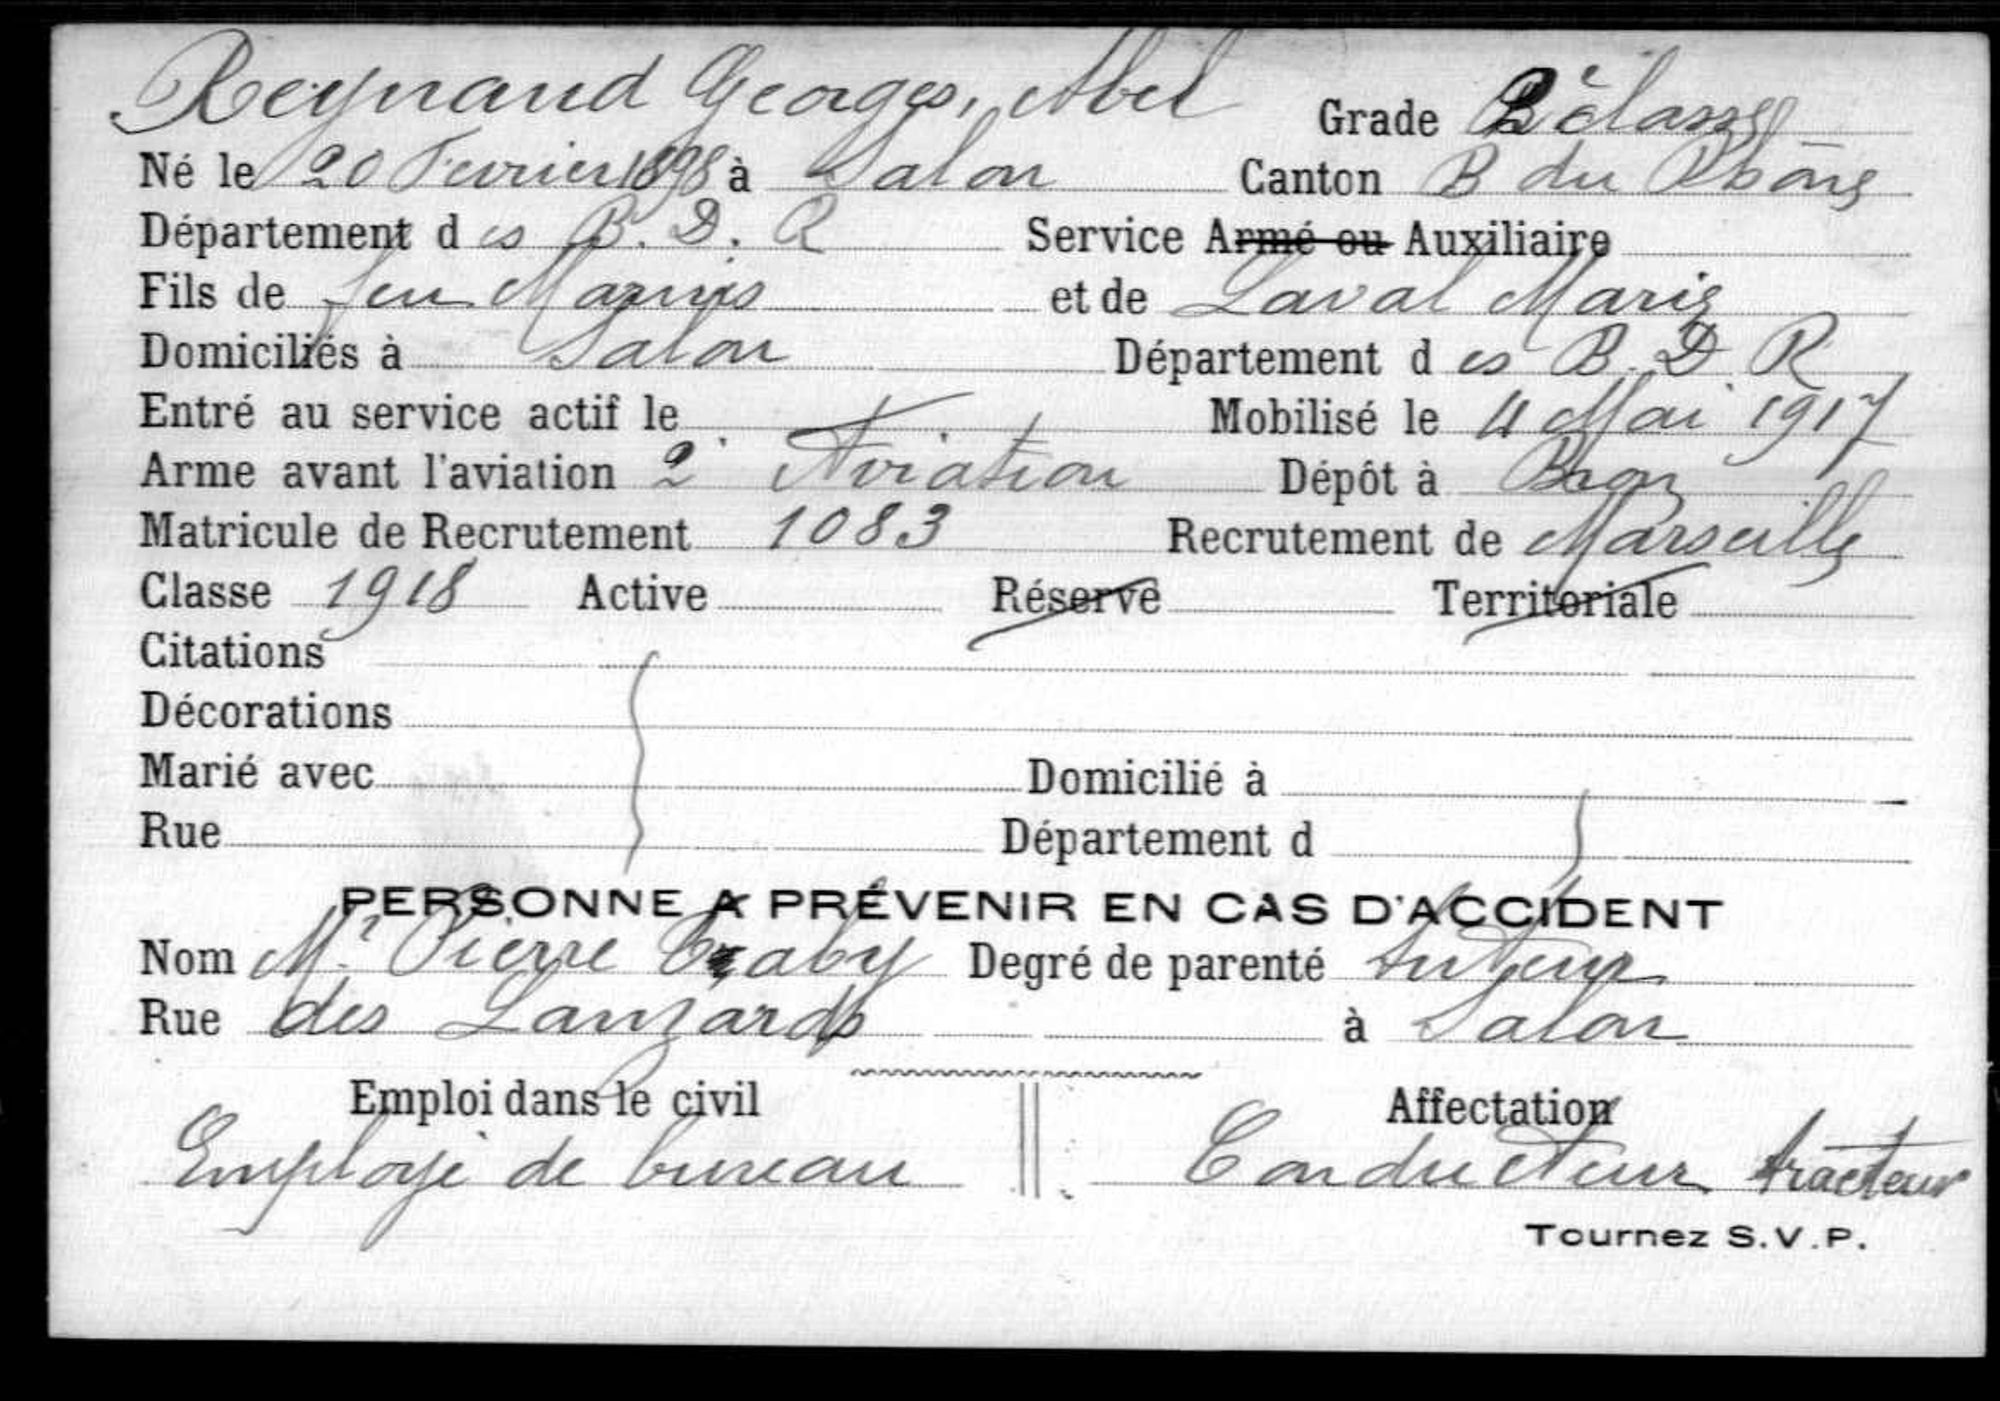 Reynaud Georges, Abel Grade 2è classe
Né le 20 Fevrier 1898 à Salon Canton B du Rhône
Département des B. D. R Service Armé ou Auxiliaire
Fils de feu Marius et de Laval Marie
Domiciliés à Salon Département des B. D R
Entré au service actif le Mobilisé le 4 Mai 1917
Arme avant l'aviation 2e Aviation Dépôt à Bron
Matricule de Recrutement 1083 Recrutement de Marseille
Classe 1918 Active Réserve Territoriale
Citations
Décorations
Marié avec Domicilié à
Rue Département d
PERSONNE A PRÉVENIR EN CAS D'ACCIDENT
Nom Mr Pierre Degré de parenté tuteur
Rue des à Salon
Emploi dans le civil Affectation
Employé de bureau Conducteur tracteur
Tournez S.V.P.